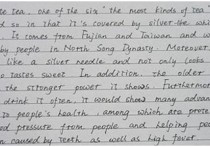 te tea, one of the six "the most kinds of tea"
d so in that it's covered by silver-like whi
. It comes from Fujian and Taiwan and w
by people in North Song Dynasty. Moreover
like a silver needle and not only looks
o tastes sweet. In addition, the older
the stronger power it shows. Furthermor
drink it often, it would show many advan
to people's health, among which are prote
d pressure from people and helping peo
n caused by teeth as well as high fever.